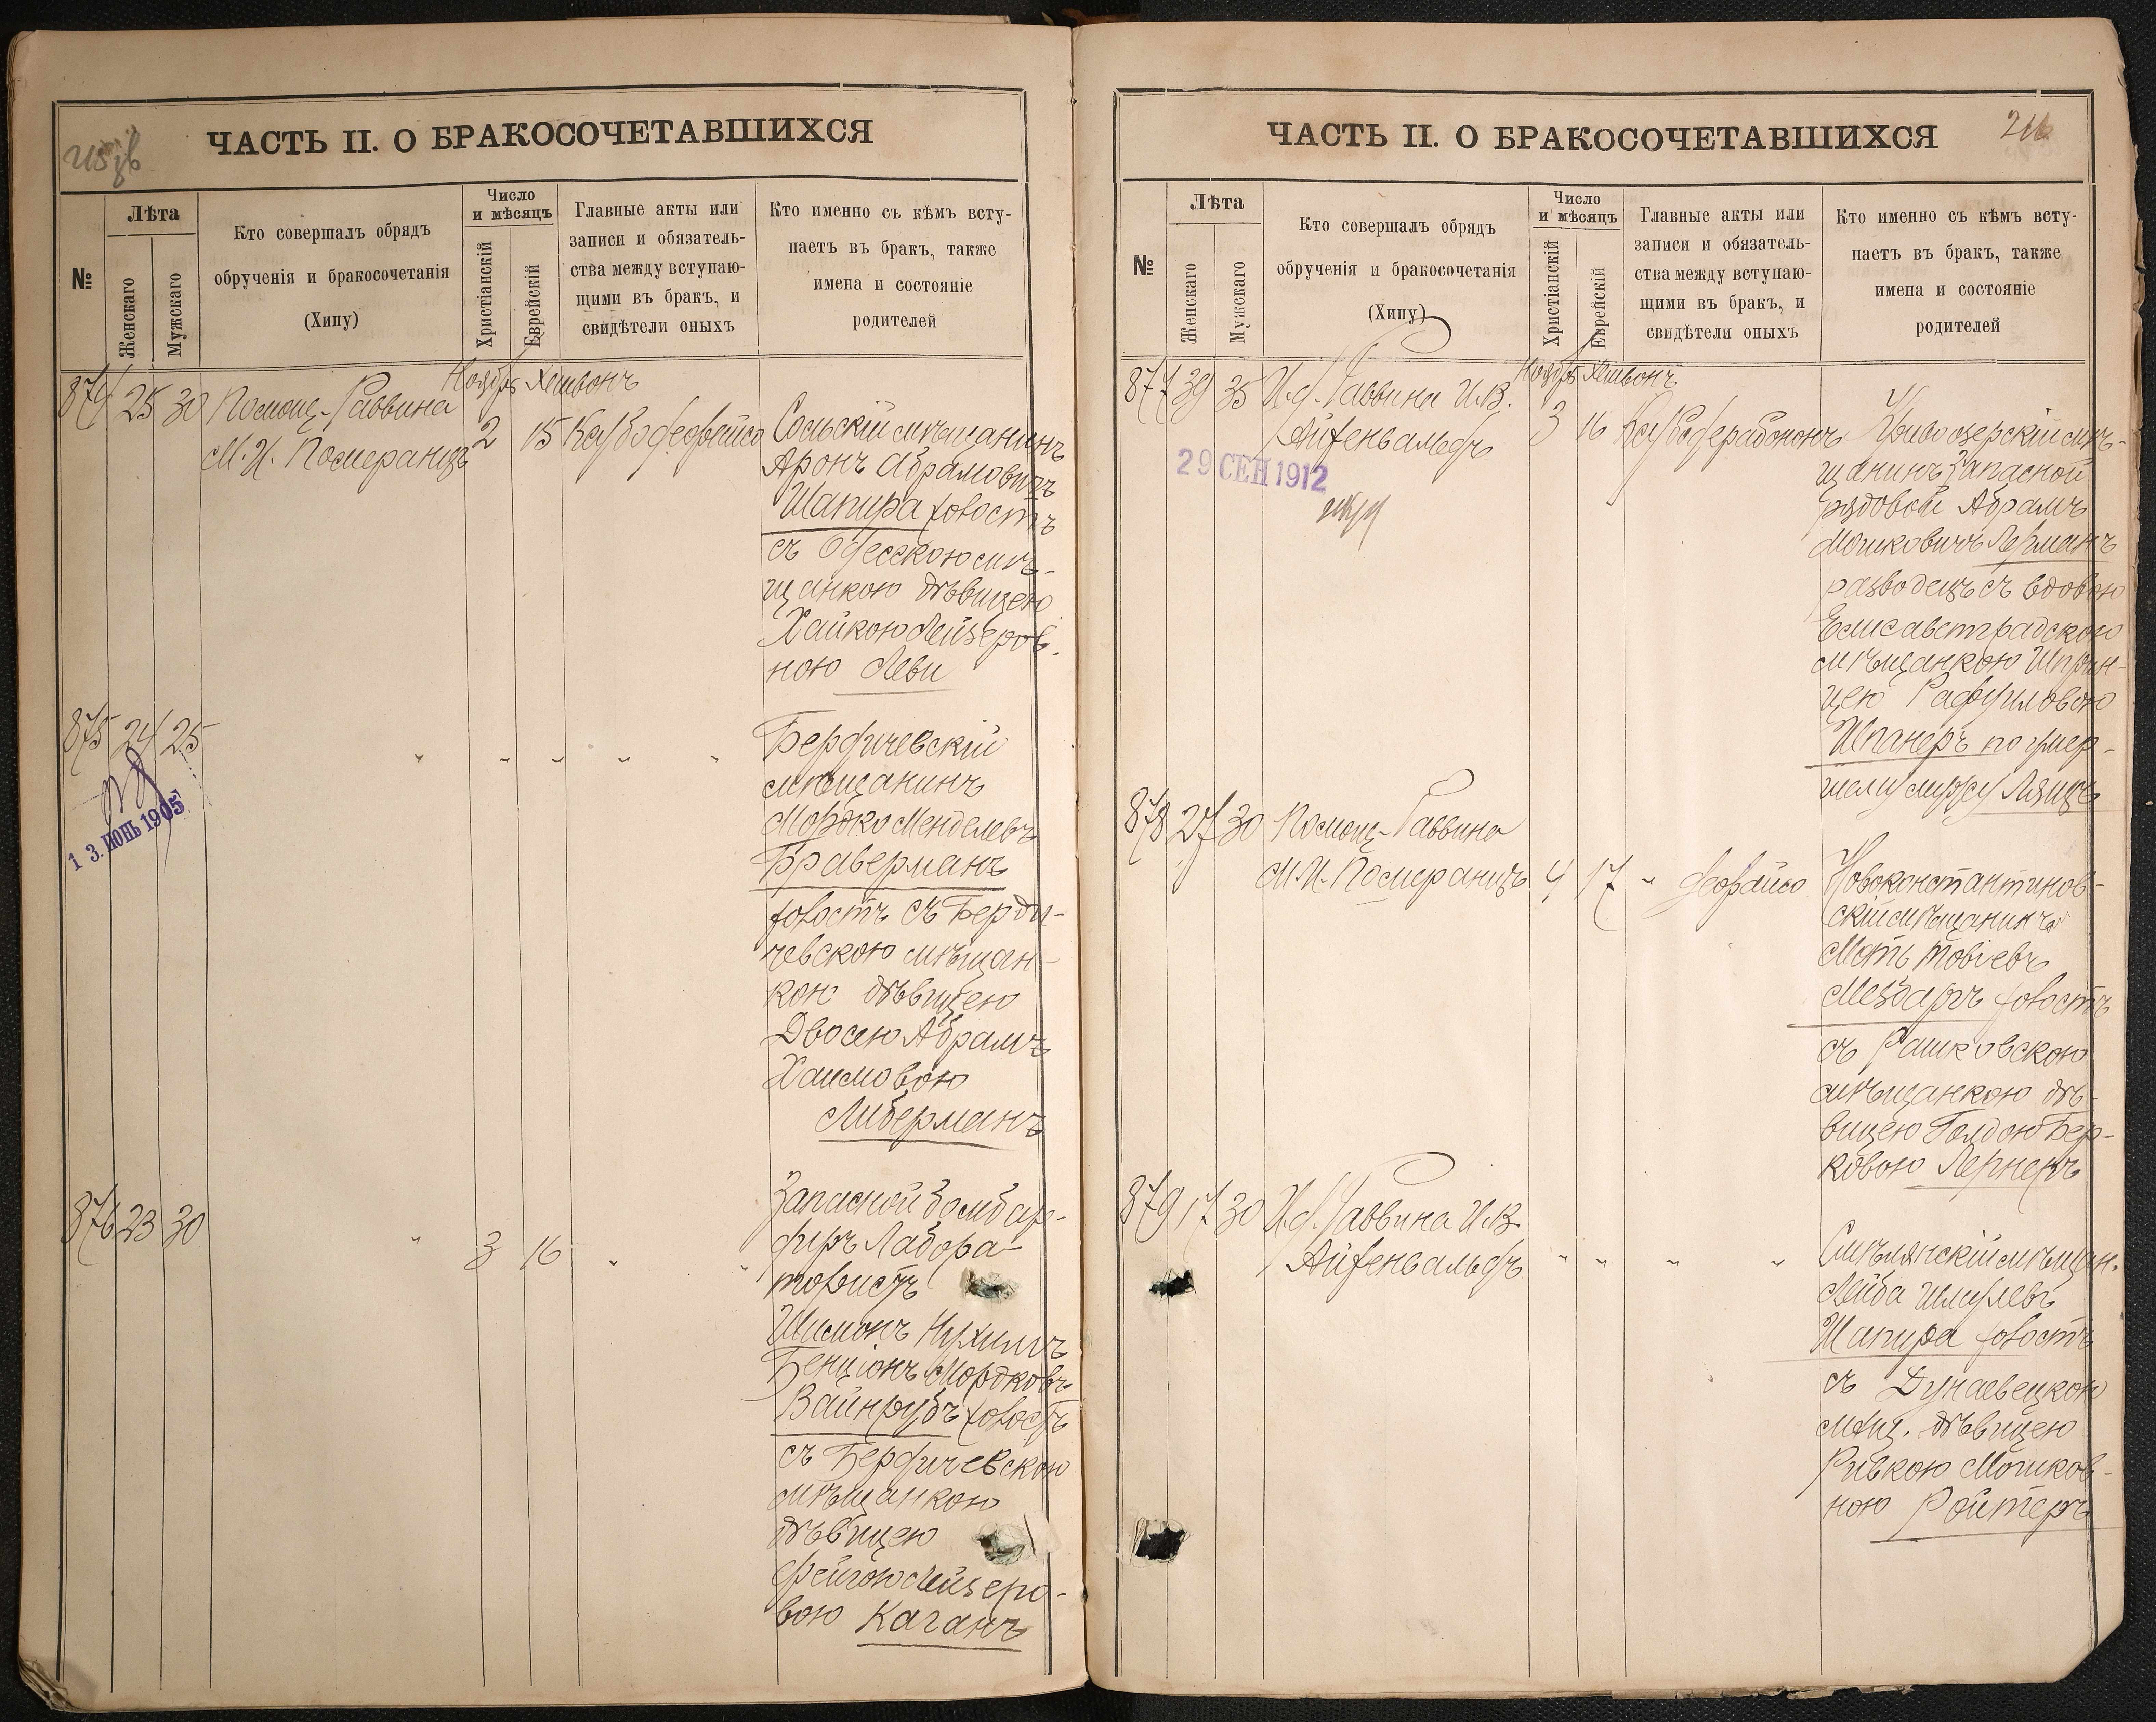 ЧАСТЬ II. О БРАКОСОЧЕТАВШИХСЯ
№
Лѣта
Женскаго
Мужскаго
Кто совершалъ обрядъ
обрученія и бракосочетанія
(Хипу)
Число
и мѣсяцъ
Христіанскій
Еврейскій
Главные акты или
записи и обязатель-
ства между вступаю-
щими въ бракъ, и
свидѣтели оныхъ
Кто именно съ кѣмъ всту-
паетъ въ бракъ, также
имена и состояніе
родителей
Ноябрь Хешвонъ
874 25 30 Помощ. Раввина
М. И. Померанцъ
2 15
Сольскій мѣщанинъ
Аронъ Абрамовичъ
Шапира холостъ
съ Одесскою мѣ-
щанкою дѣвицею
Хайкою Лейзеров-
ною Леви
875 24 25 " " " " "
13. ИЮНЬ 1905
Бердичевскій
мѣщанинъ
Мордко Менделевъ
Браверманъ
холостъ съ Берди-
чевскою мѣщан-
кою дѣвицею
Двосею Абрамъ
Хаимовою
Либерманъ
876 23 30 " 3 16 " "
Запасной бомбар-
диръ Лабора-
тористъ
Шимонъ Нухимъ
Бенціонъ Мордковъ
Вайнрубъ холостъ
съ Бердичевскою
мѣщанкою
дѣвицею
Фейгою Лейзеро-
вою Каганъ
ЧАСТЬ II. О БРАКОСОЧЕТАВШИХСЯ
№
Лѣта
Женскаго
Мужскаго
Кто совершалъ обрядъ
обрученія и бракосочетанія
(Хипу)
Число
и мѣсяцъ
Христіанскій
Еврейскій
Главные акты или
записи и обязатель-
ства между вступаю-
щими въ бракъ, и
свидѣтели оныхъ
Кто именно съ кѣмъ всту-
паетъ въ бракъ, также
имена и состояніе
родителей
Ноябрь Хешвонъ
877 39 35 И. д. Раввина И. В.
Айзенвальдъ
3 16
29 СЕН 1912
Кривоозерскій мѣ-
щанинъ Запасной
рядовой Абрамъ
Мошковичъ Лерманъ
разводецъ съ вдовою
Елисаветградскою
мѣщанкою Шприн-
цею Рафуиловою
Шпанеръ по умер-
шему мужу
878 27 30 Помощ. Раввина
М. И. Померанцъ 4 17 "
Новоконстантинов-
скій мѣщанинъ
Мотъ Товіевъ
холостъ
съ Рашковскою
мѣщанкою дѣ-
вицею Голдою Бер-
ковою Лернеръ
879 17 30 И. д. Раввина И. В.
Айзенвальдъ " " " "
Смѣлянскій мѣщан.
Лейба Шмулевъ
Шапира холостъ
съ Дунаевецкою
мѣщ. дѣвицею
Ривкою Мошков-
ною Ройтеръ